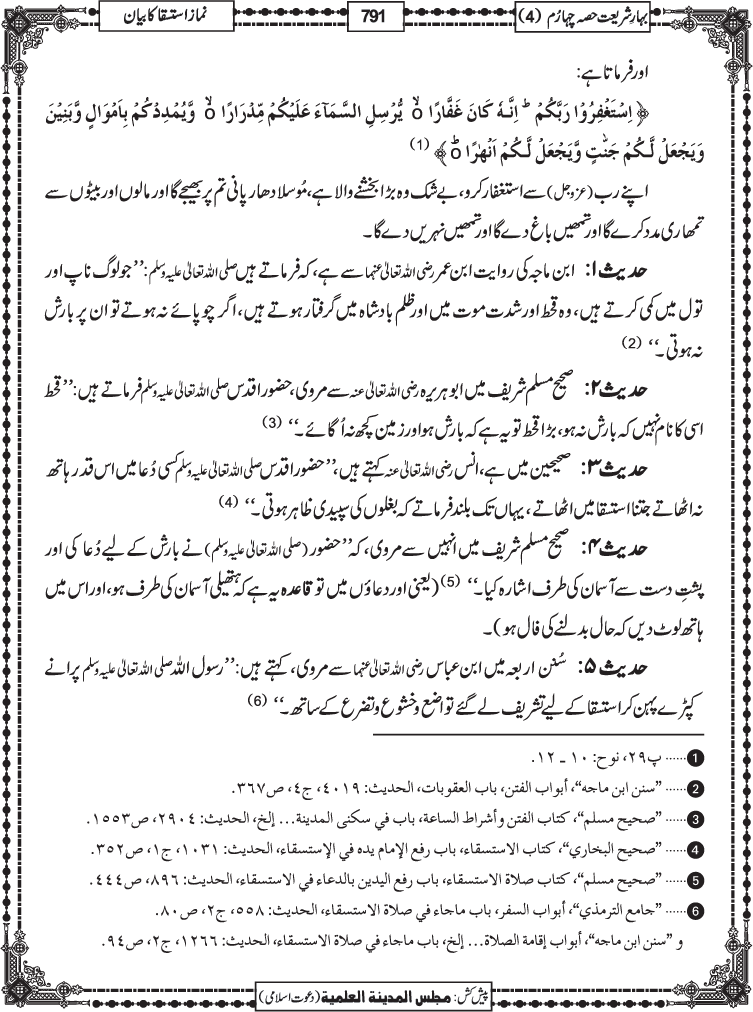 بہارِ شریعت حصہ چہارم (4)
791
نماز استسقا کا بیان
اور فرماتا ہے:
﴿ اِسْتَغْفِرُوْا رَبَّكُمْ ؕ اِنَّهٗ كَانَ غَفَّارًا ۙ۝ یُّرْسِلِ السَّمَآءَ عَلَیْكُمْ مِّدْرَارًا ۙ۝ وَّیُمْدِدْكُمْ بِاَمْوَالٍ وَّبَنِیْنَ
وَیَجْعَلْ لَّكُمْ جَنّٰتٍ وَّیَجْعَلْ لَّكُمْ اَنْهٰرًا ؕ۝ ﴾ (1)
اپنے رب (عزوجل) سے استغفار کرو، بے شک وہ بڑا بخشنے والا ہے، مُوسلا دھار پانی تم پر بھیجے گا اور مالوں اور بیٹوں سے
تمھاری مدد کرے گا اور تمھیں باغ دے گا اور تمھیں نہریں دے گا۔
حدیث ۱: ابن ماجہ کی روایت ابن عمر رضی اللہ تعالیٰ عنہما سے ہے، کہ فرماتے ہیں صلی اللہ تعالیٰ علیہ وسلم: ’’جو لوگ ناپ اور
تول میں کمی کرتے ہیں، وہ قحط اور شدت موت میں اور ظلم بادشاہ میں گرفتار ہوتے ہیں، اگر چوپائے نہ ہوتے تو ان پر بارش
نہ ہوتی۔‘‘ (2)
حدیث ۲: صحیح مسلم شریف میں ابوہریرہ رضی اللہ تعالیٰ عنہ سے مروی، حضور اقدس صلی اللہ تعالیٰ علیہ وسلم فرماتے ہیں: ’’قحط
اسی کا نام نہیں کہ بارش نہ ہو، بڑا قحط تو یہ ہے کہ بارش ہو اور زمین کچھ نہ اُگائے۔‘‘ (3)
حدیث ۳: صحیحین میں ہے، انس رضی اللہ تعالیٰ عنہ کہتے ہیں، ’’حضور اقدس صلی اللہ تعالیٰ علیہ وسلم کسی دُعا میں اس قدر ہاتھ
نہ اٹھاتے جتنا استسقا میں اٹھاتے، یہاں تک بلند فرماتے کہ بغلوں کی سپیدی ظاہر ہوتی۔‘‘ (4)
حدیث ۴: صحیح مسلم شریف میں انہیں سے مروی، کہ ’’حضور (صلی اللہ تعالیٰ علیہ وسلم) نے بارش کے لیے دُعا کی اور
پشتِ دست سے آسمان کی طرف اشارہ کیا۔‘‘ (5) (یعنی اور دعاؤں میں تو قاعدہ یہ ہے کہ ہتھیلی آسمان کی طرف ہو، اور اس میں
ہاتھ لوٹ دیں کہ حال بدلنے کی فال ہو)۔
حدیث ۵: سُنن اربعہ میں ابن عباس رضی اللہ تعالیٰ عنہما سے مروی، کہتے ہیں: ’’رسول اللہ صلی اللہ تعالیٰ علیہ وسلم پرانے
کپڑے پہن کر استسقا کے لیے تشریف لے گئے تواضع و خشوع و تضرع کے ساتھ۔‘‘ (6)
1 ...... پ۲۹، نوح: ۱۰ ـ ۱۲.
2 ...... ”سنن ابن ماجه“، أبواب الفتن، باب العقوبات، الحديث: ٤٠١٩، ج٤، ص٣٦٧.
3 ...... ”صحيح مسلم“، كتاب الفتن وأشراط الساعة، باب في سكنى المدينة... إلخ، الحديث: ٢٩٠٤، ص١٥٥٣.
4 ...... ”صحيح البخاري“، كتاب الاستسقاء، باب رفع الإمام يده في الإستسقاء، الحديث: ١٠٣١، ج١، ص٣٥٢.
5 ...... ”صحيح مسلم“، كتاب صلاة الاستسقاء، باب رفع اليدين بالدعاء في الاستسقاء، الحديث: ٨٩٦، ص٤٤٤.
6 ...... ”جامع الترمذي“، أبواب السفر، باب ماجاء في صلاة الاستسقاء، الحديث: ٥٥٨، ج٢، ص٨٠.
و ”سنن ابن ماجه“، أبواب إقامة الصلاة... إلخ، باب ماجاء في صلاة الاستسقاء، الحديث: ١٢٦٦، ج٢، ص٩٤.
پیش کش: مجلس المدينة العلمية (دعوت اسلامی)